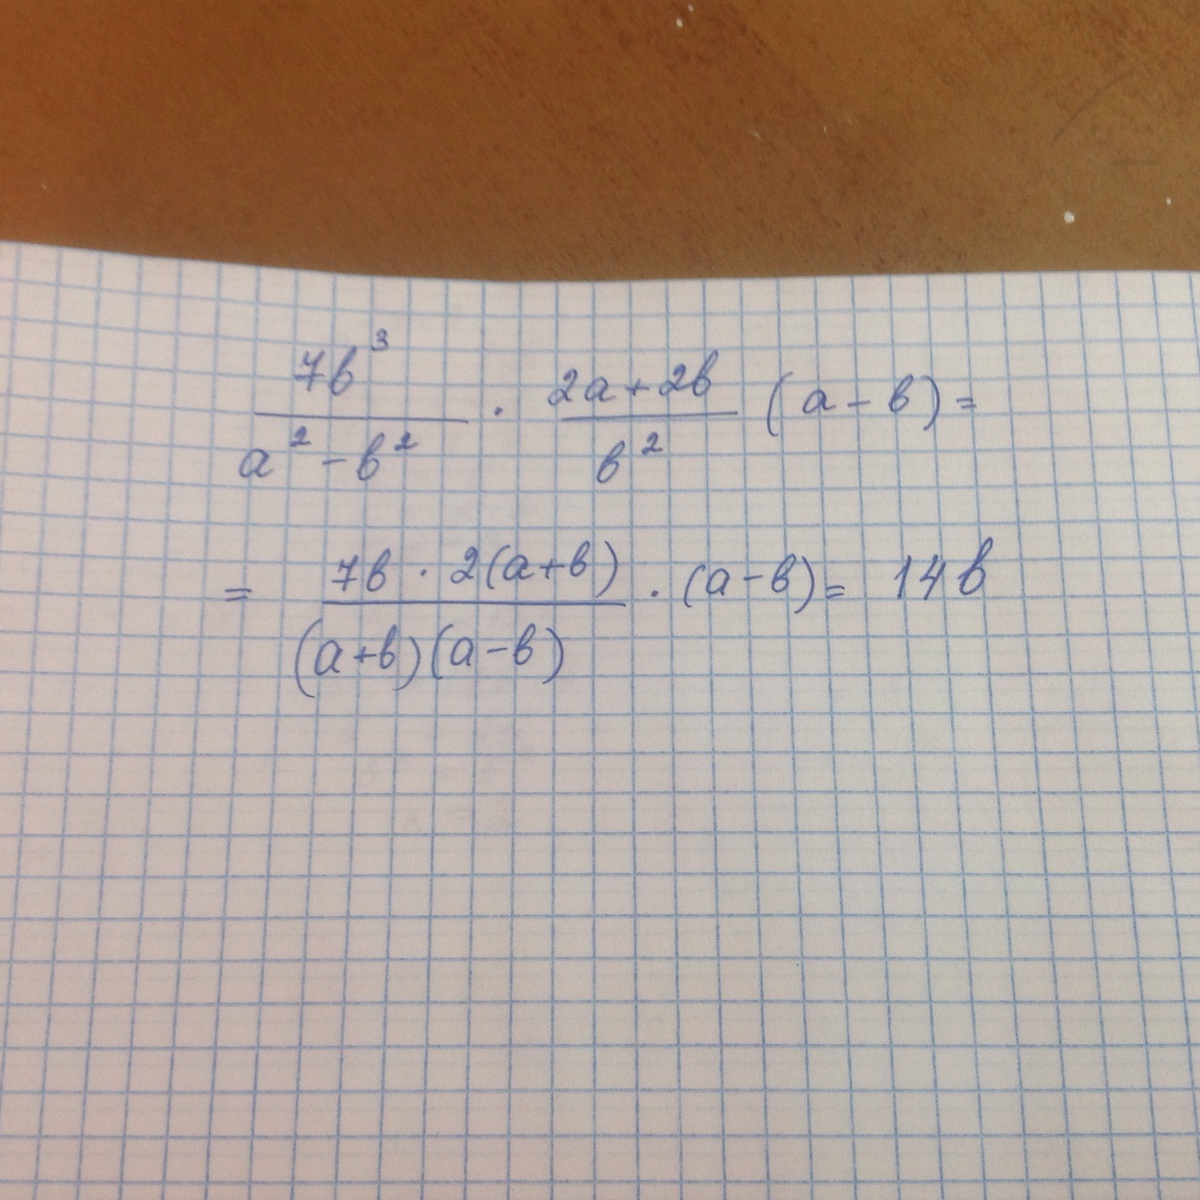 7b³/(a² - b²) · (2a + 2b)/b² (a - b) =
= 7b · 2(a+b)/((a+b)(a-b)) · (a-b) = 14b